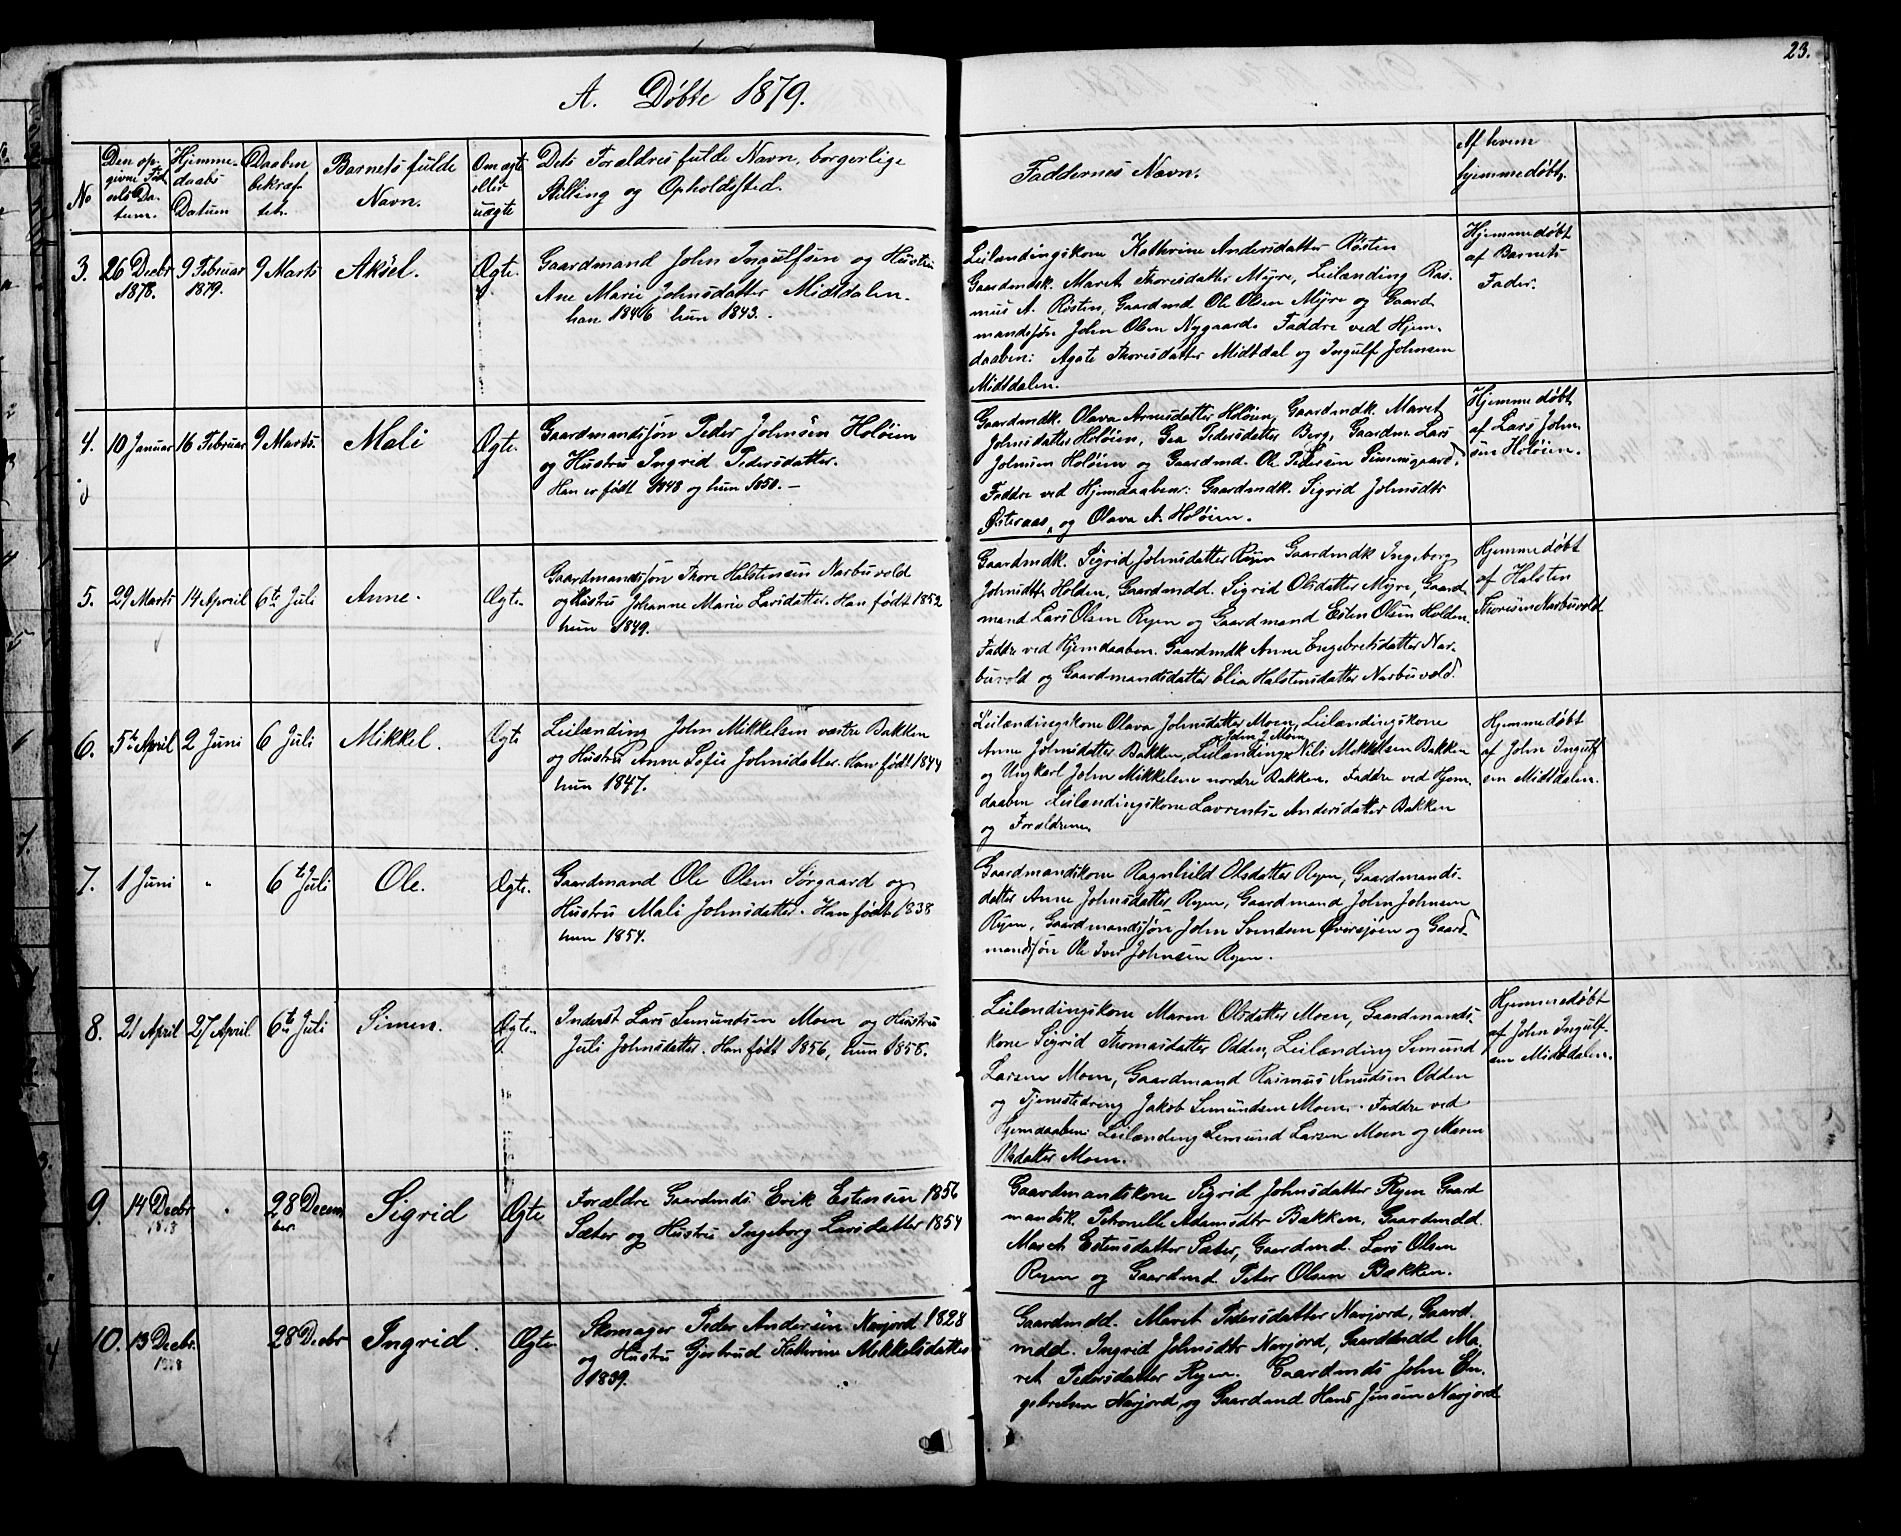 23.
A. Døbte 1879.
No
Den op-
givne Fød
sels Da-
tum.
Hjemme-
daabs
Datum
Daaben
bekræf-
tet.
Barnets fulde
Navn.
Om ægte
eller
uægte
Dets Forældres fulde Navn, borgerlige
Stilling og Opholdssted.
Faddernes Navn.
Af hvem
hjemmedøbt.
3.
26 Decbr
1878.
9 Februar
1879.
9 Marts
Aksel.
Ægte.
Gaardmand John Ingulfsen og Hustru
Ane Marie Johnsdatter Midtdalen.
han 1846 hun 1843.
Leilændingskone Kathrine Andersdatter Røsten
Gaardmdsk. Maret Thoresdatter Myre, Leilænding Ras-
mus A. Røsten, Gaardmd Ole Olsen Myre og Gaard
mandssøn John Olsen Nygaard. Faddre ved Hjem-
daaben: Agate Thoresdatter Midtdal og Ingulf Johnsen
Midtdalen.
Hjemmedøbt
af Barnets
Fader.
4.
10 Januar
16 Februar
9 Marts.
Mali
Ægte.
Gaardmandssøn Peder Johnsen Holøien
og Hustru Ingrid Pedersdatter.
Han er født 1848 og hun 1850. —
Gaardmdk. Olava Arnesdatter Holøien, Gaardmdk. Maret
Johnsdatter Holøien, Gea Pedersdatter Berg, Gaardm. Lars
Johnsen Holøien og Gaardmd. Ole Pedersen Simensgaard.
Faddre ved Hjemdaaben: Gaardmdk. Sigrid Johnsdtr
Østeraas, og Olava A. Holøien.
Hjemmedøbt
af Lars John
sen Holøien.
5.
29 Marts
14 April
6te Juli
Anne.
Ægte.
Gaardmandssøn Thore Halstensen Narbuvold
og Hustru Johanne Marie Larsdatter. Han født 1852
hun 1849.
Gaardmdk. Sigrid Johnsdatter Ryen Gaardmdk Ingeborg
Johnsdtr Holden, Gaardmdd. Sigrid Olsdatter Myre, Gaard
mand Lars Olsen Ryen og Gaardmand Esten Olsen Holden.
Faddre ved Hjemdaaben. Gaardmdk Anne Engebretsdatter Nar-
buvold og Gaardmandsdatter Elia Halstensdatter Narbuvold.
Hjemmedøbt
af Halsten
Thoresen Narbuvold
6.
5te April
2 Juni
6 Juli
Mikkel.
Ægte
Leilænding John Mikkelsen vestre Bakken
og Hustru Anne Sofie Johnsdatter. Han født 1844
hun 1847.
Leilændingskone Olava Johnsdatter Moen, Leilændingskone
Anne Johnsdatter Bakken, Leilænding Nils Mikkelsen Bakken
og Ungkarl John Mikkelsen nordre Bakken. Faddre ved Hjem-
daaben Leilændingskone Lavrentse Andersdatter Bakken
og Forældrene.
Hjemmedøbt
af John Ingulf
sen Midtdalen.
7.
1 Juni
"
6te Juli
Ole.
Ægte.
Gaardmand Ole Olsen Sørgaard og
Hustru Mali Johnsdatter. Han født 1838
hun 1854.
Gaardmandskone Ragnhild Olsdatter Ryen, Gaardmands-
datter Anne Johnsdatter Ryen, Gaardmand John Johnsen
Ryen, Gaardmandssøn John Svendsen Øversjøen og Gaard-
mandssøn Ole Iver Johnsen Ryen.
8.
21 April
27 April
6te Juli
Simen.
Ægte.
Inderst Lars Semundsen Moen og Hustru
Juli Johnsdatter. Han født 1856, hun 1858.
Leilændingskone Maren Olsdatter Moen, Gaardmands-
kone Sigrid Thomasdatter Odden, Leilænding Semund
Larsen Moen, Gaardmand Rasmus Knudsen Odden
og Tjenestedreng Jakob Semundsen Moen. Faddre ved
Hjemdaaben: Leilænding Semund Larsen Moen og Maren
Olsdatter Moen.
Hjemmedøbt
af John Ingulf-
sen Midtdalen.
9.
14 Decbr
1878
"
28 Decem
ber
Sigrid
Ægte
Forældre Gaardmds Erik Estensen 1856
Sæter og Hustru Ingeborg Larsdatter 1854
Gaardmandskone Sigrid Johnsdatter Ryen Gaard
mandsk. Petronelle Adamsdtr Bakken, Gaardmdd.
Maret Estensdatter Sæter, Gaardmd. Lars Olsen
Ryen og Gaardmd Peter Olsen Bækken.
10.
13 Decbr.
1878
28 Decbr
Ingrid.
Ægte
Skomager Peder Andersen Narjord 1828
og Hustru Gjertrud Kathrine Mikkelsdatter
1839.
Gaardmdd. Maret Pedersdatter Narjord, Gaard,
mdd. Ingrid Johnsdtr Narjord, Gaardmdd Ma-
ret Pedersdatter Ryen. Gaardmds John En-
gebretsen Narjord, og Gaardmd Hans Jensen Narjord